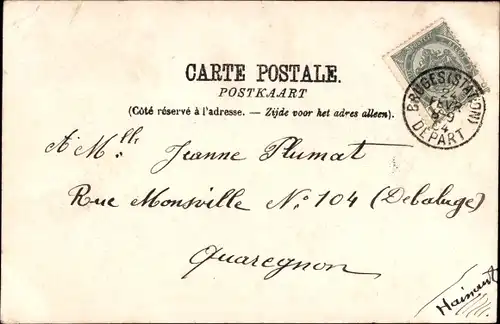 CARTE POSTALE.
POSTKAART
(Côté réservé à l'adresse. — Zijde voor het adres alleen).
BRUGES (STATION)
24
FEVR
8-9
04
DEPART
A Mlle. Jeanne Plumat
Rue Monsville No. 104 (Debaluge)
Quaregnon
Hainaut